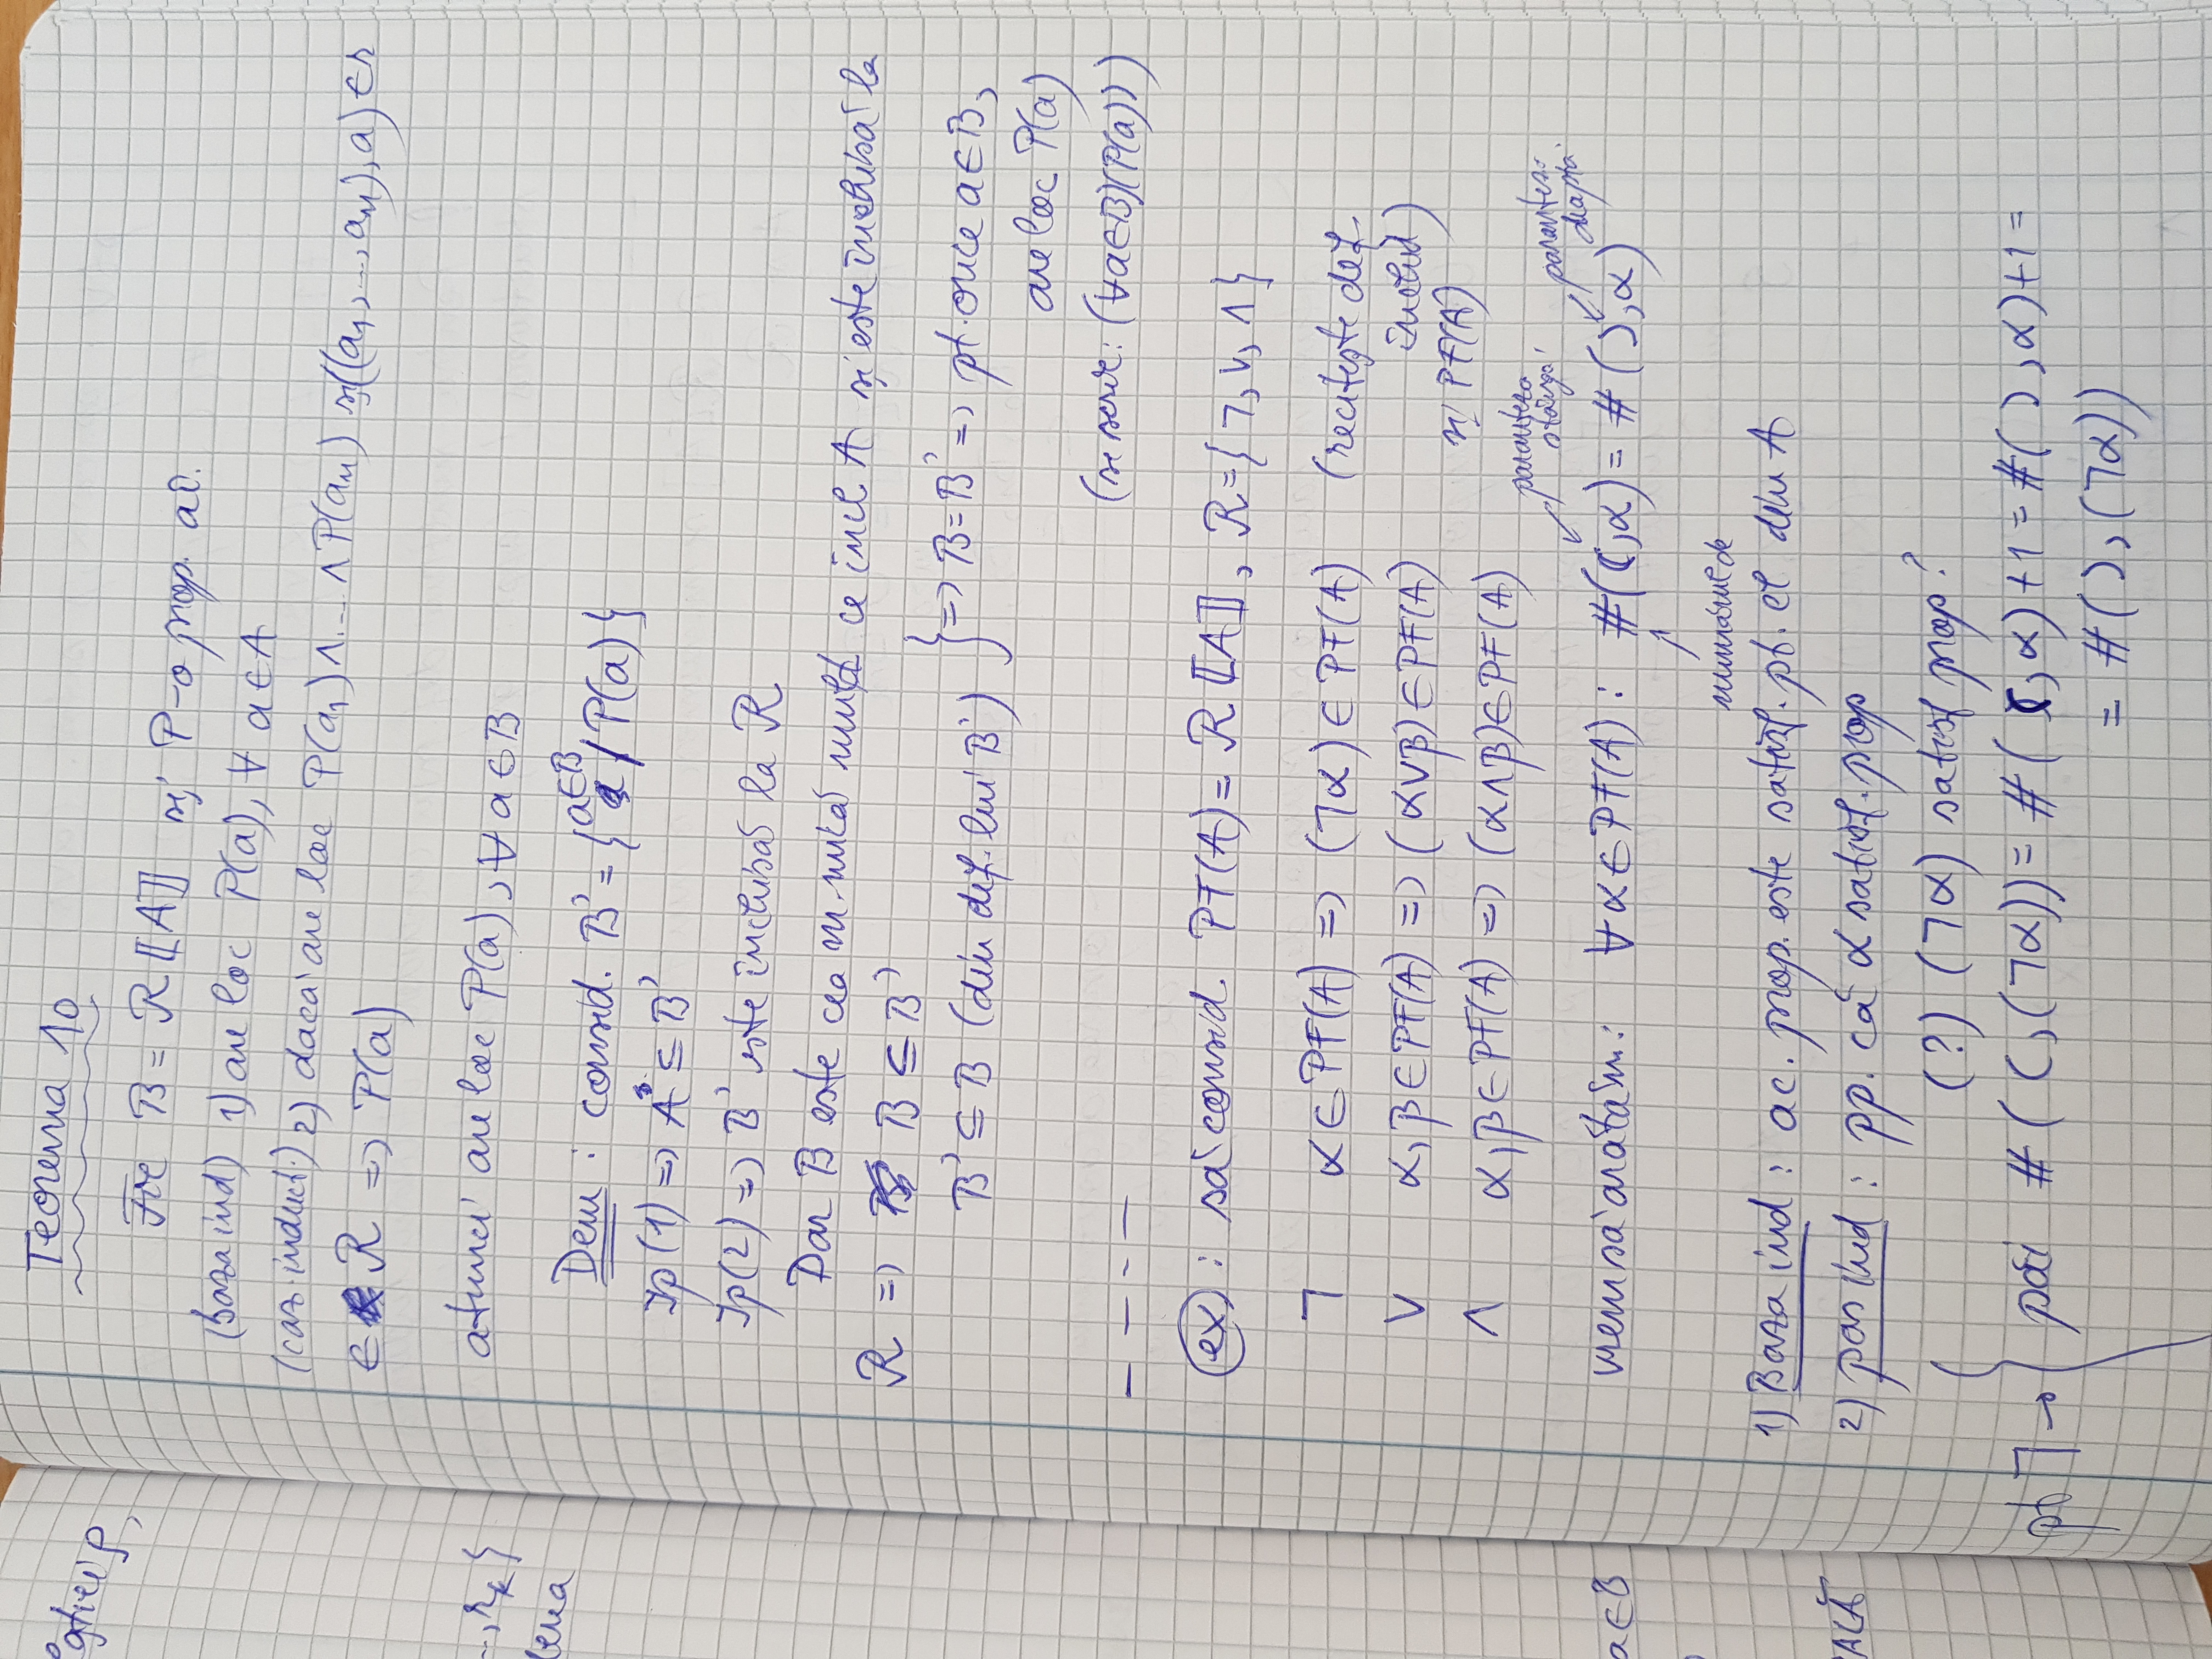 gticii ρ,
..., r_k}
a∈B
Teorema 10
Fie B = R⟦A⟧ și P-o prop. aî.
(baza ind) 1) are loc P(a), ∀ a∈A
(caz. induct.) 2) dacă are loc P(a₁)∧...∧P(aₙ) și ((a₁,...,aₙ),a)∈r
∈ R => P(a)
atunci are loc P(a), ∀ a∈B
Dem : consid. B' = {a∈B / P(a)}
Ip(1) => A ⊆ B'
Ip(2) => B' este închisă la R
Dar B este cea m. mică mulț ce incl A și este închisă la
R => B ⊆ B'
B' ⊆ B (din def. lui B') } => B = B' => pt. orice a∈B,
are loc P(a)
(se scrie: (∀a∈B)(P(a)))
— — - —
ex : să consid. PF(A) = R⟦A⟧, R={¬, ∨, ∧}
¬ α∈PF(A) => (¬α)∈PF(A) (recitește def.
∨ α, β∈PF(A) => (α∨β)∈PF(A) închid)
și PF(A)
∧ α, β∈PF(A) => (α∧β)∈PF(A)
paranteza stânga
paranteza dreapta
vrem să arătăm: ∀ α∈PF(A) : #((,α) = #(),α)
numărul de
1) Baza ind : ac. prop. este satisf. pt. el din A
2) pas ind : pp. că α satisf. prop
(?) (¬α) satisf prop?
pt ¬ → { păi #((,(¬α)) = #((,α)+1 = #(),α)+1 =
= #(),(¬α))